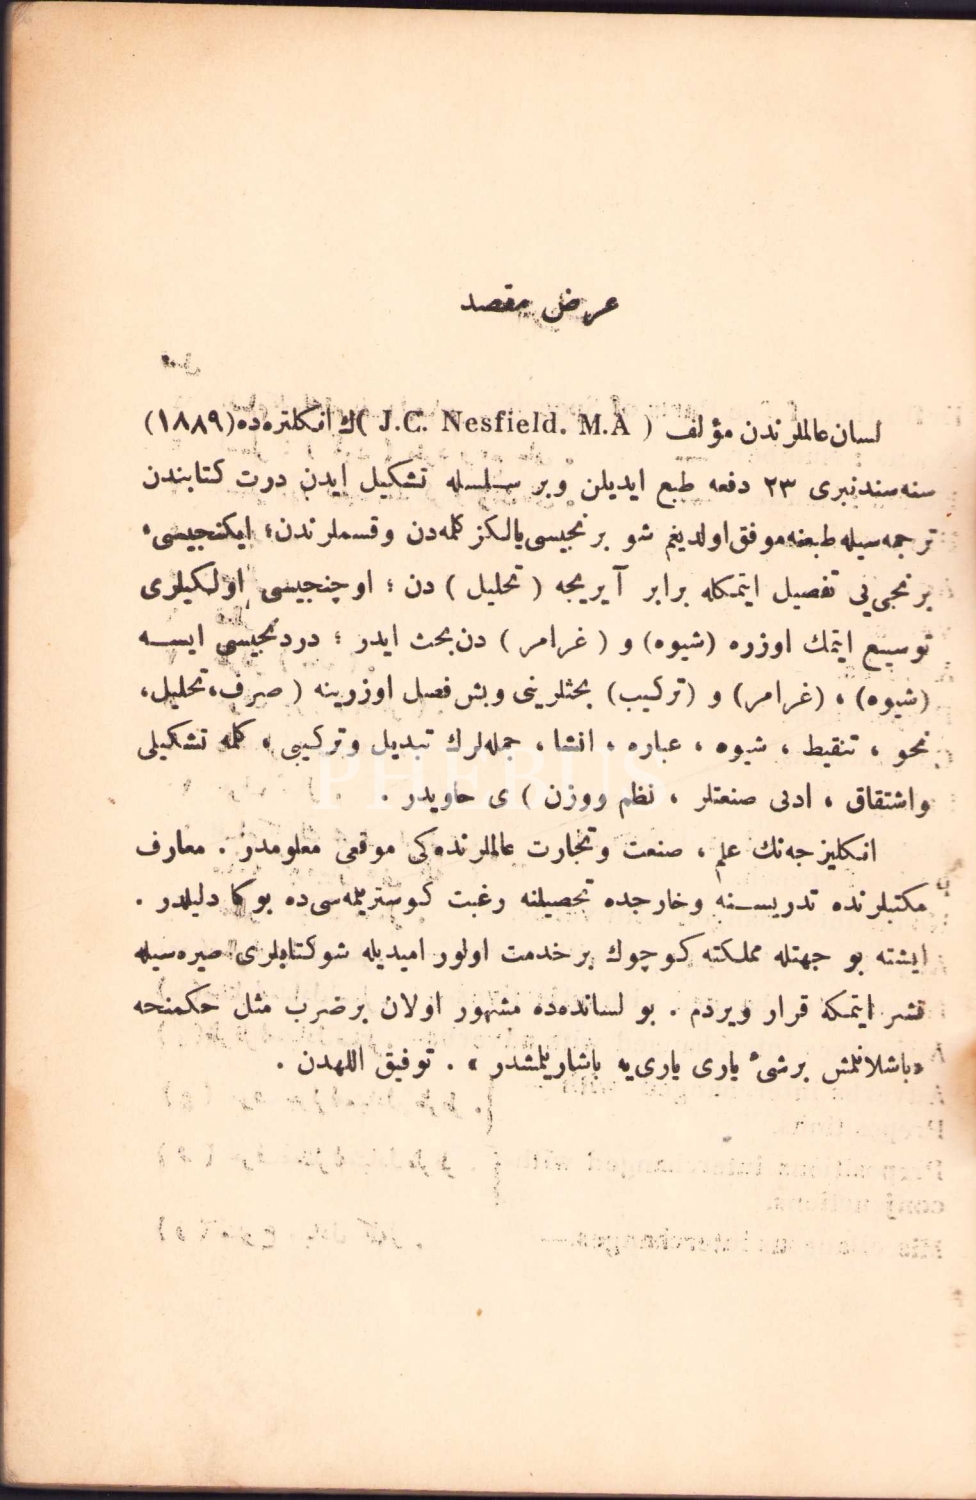 عرض مقصد
لسان عالملرندن مؤلف ( J.C. Nesfield. M.A )ك انكلتره‌ده (١٨٨٩)
سنه‌سندنبرى ٢٣ دفعه طبع ايديلن وبر سلسله تشكيل ايدن درت كتابندن
ترجمه‌سيله طبعنه موفق اولديغم شو برنجيسى يالكز كلمه‌دن وقسملرندن؛ ايكنجيسى،
برنجى‌يى تفصيل ايتمكله برابر آيريجه ( تحليل ) دن ؛ اوچنجيسى اولكيلرى
توسيع ايتمك اوزره (شيوه) و ( غرامر ) دن بحث ايدر ؛ دردنجيسى ايسه
(شيوه) ، (غرامر) و (تركيب) بحثلرينى وبش فصل اوزرينه ( صرف، تحليل،
نحو ، تنقيط ، شيوه ، عباره ، انشا ، جمله‌لرك تبديل وتركيبى ، كلمه تشكيلى
واشتقاق ، ادبى صنعتلر ، نظم ووزن ) ى حاويدر .
انكليزجه‌نك علم ، صنعت وتجارت عالملرنده‌كى موقعى معلومدر . معارف
مكتبلرنده تدريسنه وخارجده تحصيلنه رغبت كوستريلمه‌سى‌ده بوكا دليلدر .
ايشته بو جهتله مملكته كوچوك برخدمت اولور اميديله شو كتابلرى صيره‌سيله
نشر ايتمكه قرار ويردم . بو لسانده‌ده مشهور اولان برضرب مثل حكمنجه
«باشلانلمش برشئ يارى يارى‌يه باشاريلمشدر» . توفيق اللهدن .
PHEBUS